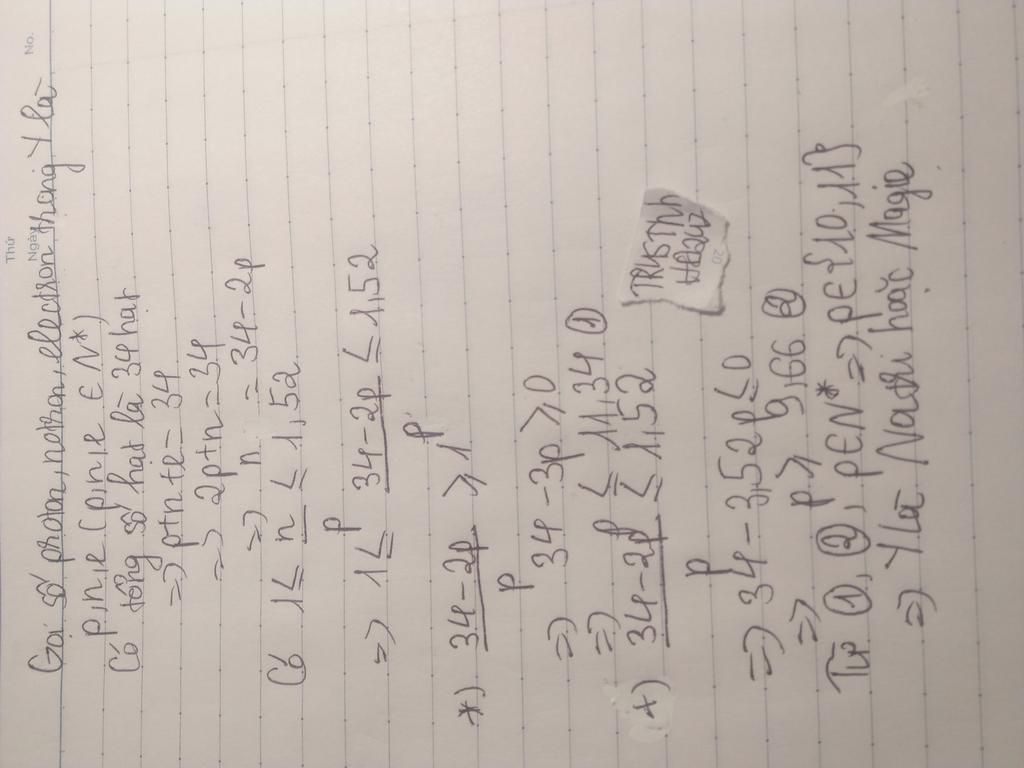 Thứ
Ngày
No.
Gọi số proton, notron, electron trong Y là
p, n, e (p, n, e ∈ N*)
Có tổng số hạt là 34 hạt
=> p+n+e = 34
=> 2p+n = 34
=> n = 34-2p
Có 1 ≤ n/p ≤ 1,52
=> 1 ≤ (34-2p)/p ≤ 1,52
*) (34-2p)/p ≥ 1
=> 34-3p ≥ 0
=> p ≤ 11,34 ①
*) (34-2p)/p ≤ 1,52
=> 34-3,52p ≤ 0
=> p ≥ 9,66 ②
Từ ①, ②, p ∈ N* => p ∈ {10, 11}
=> Y là Natri hoặc